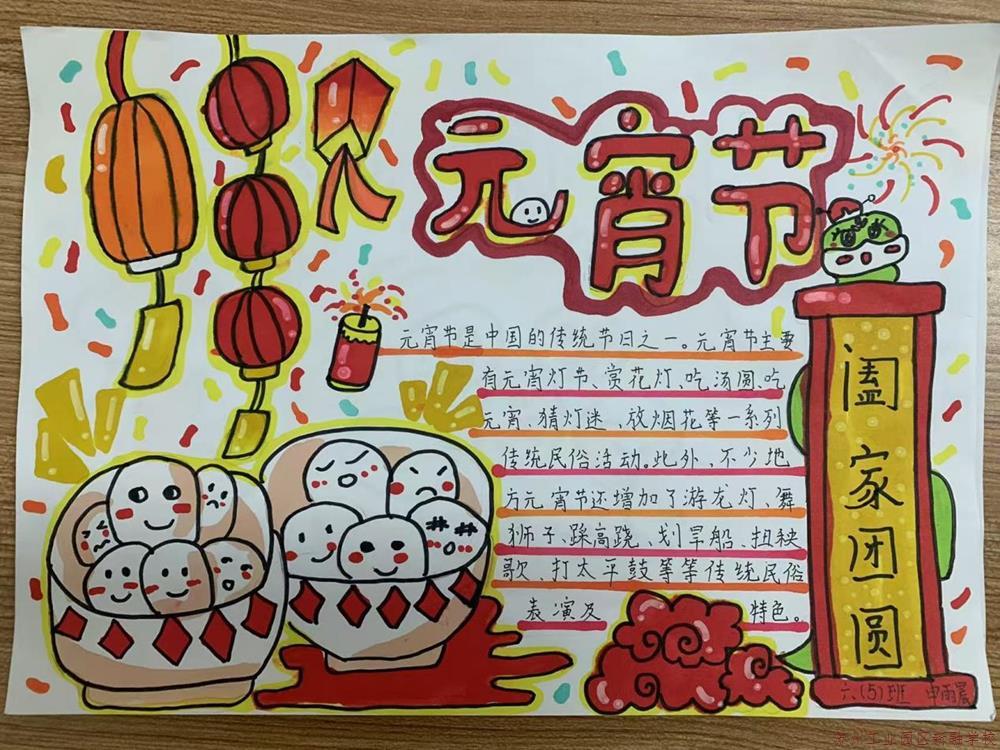 元宵节
元宵节是中国的传统节日之一。元宵节主要
有元宵灯节、赏花灯、吃汤圆、吃
元宵、猜灯迷、放烟花等一系列
传统民俗活动。此外、不少地
方元宵节还增加了游龙灯、舞
狮子、踩高跷、划旱船、扭秧
歌、打太平鼓等等传统民俗
表演及 特色。
阖家团圆
六(5)班 申雨晨